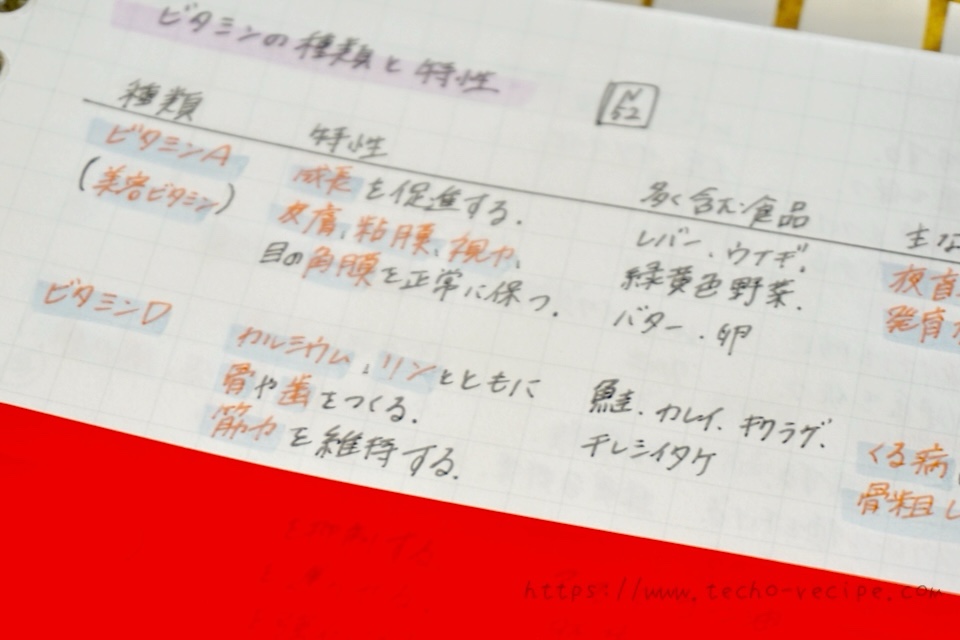 ビタミンの種類と特性
N
52
種類 特性 多く含む食品 主な
ビタミンA
(美容ビタミン)
成長を促進する.
皮膚、粘膜、視力、
目の角膜を正常に保つ.
レバー、ウナギ、
緑黄色野菜、
バター、卵
夜盲
発育
ビタミンD
カルシウム、リンとともに
骨や歯をつくる.
筋力を維持する.
鮭、カレイ、キクラゲ、
干しシイタケ
くる病
骨粗し
https://www.techo-recipe.com/